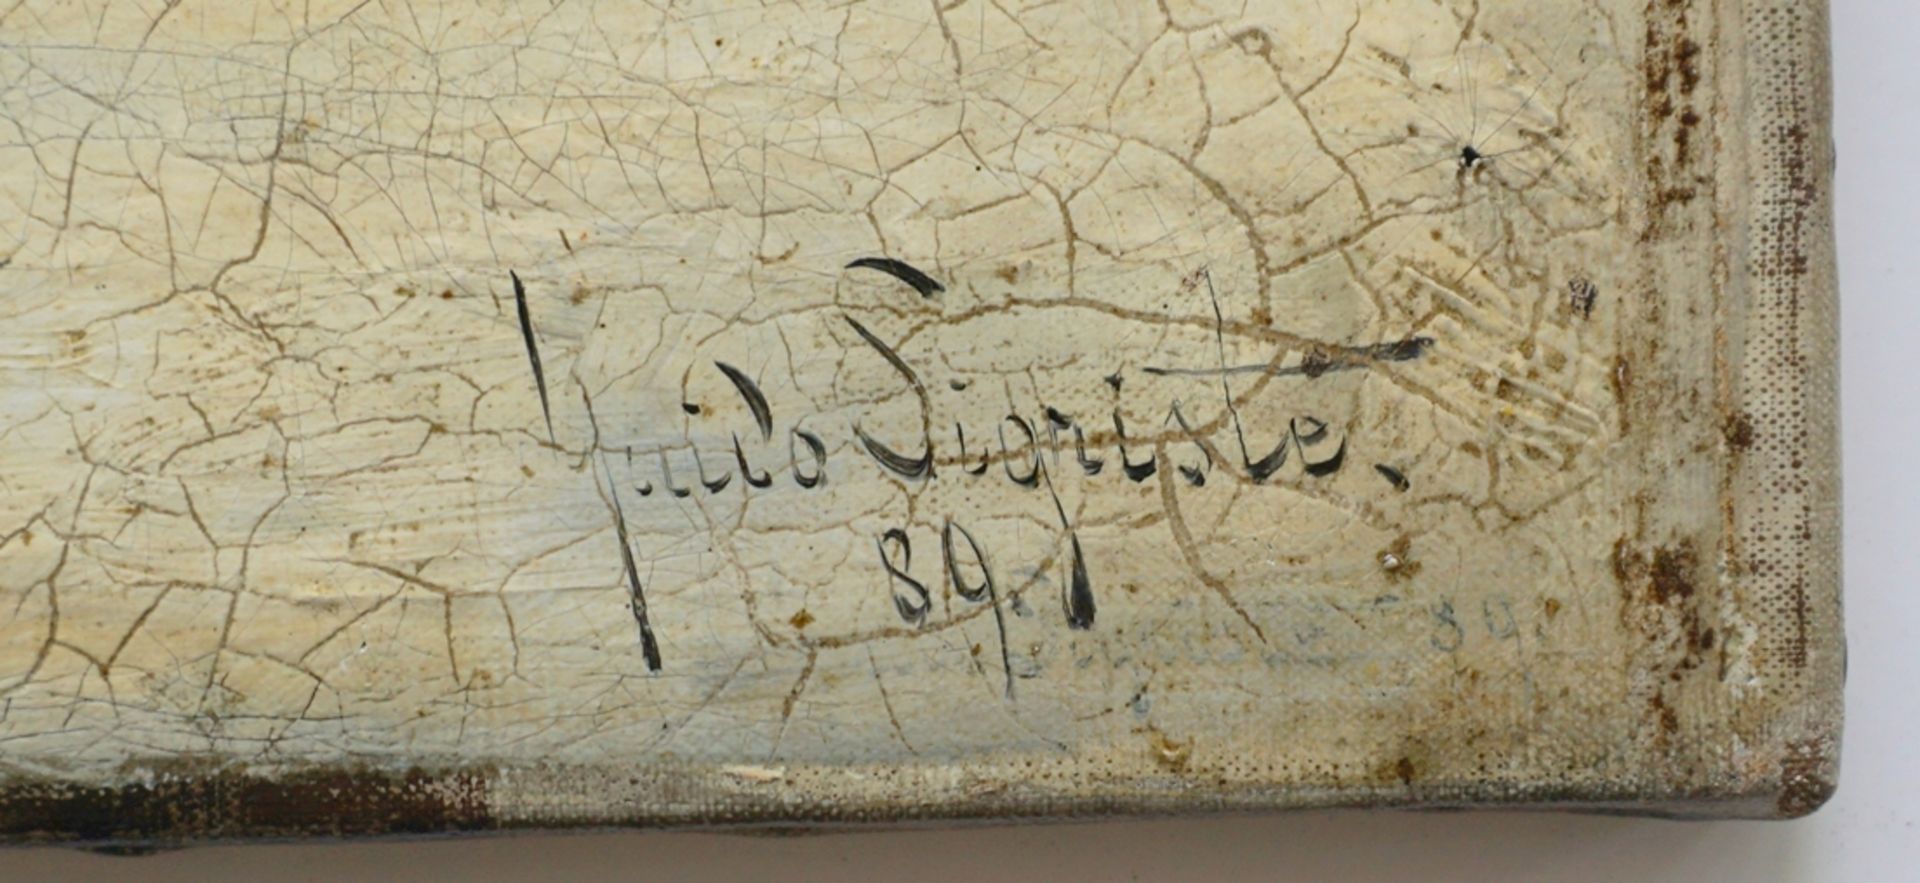 Guido Sigriste.
89.
89.